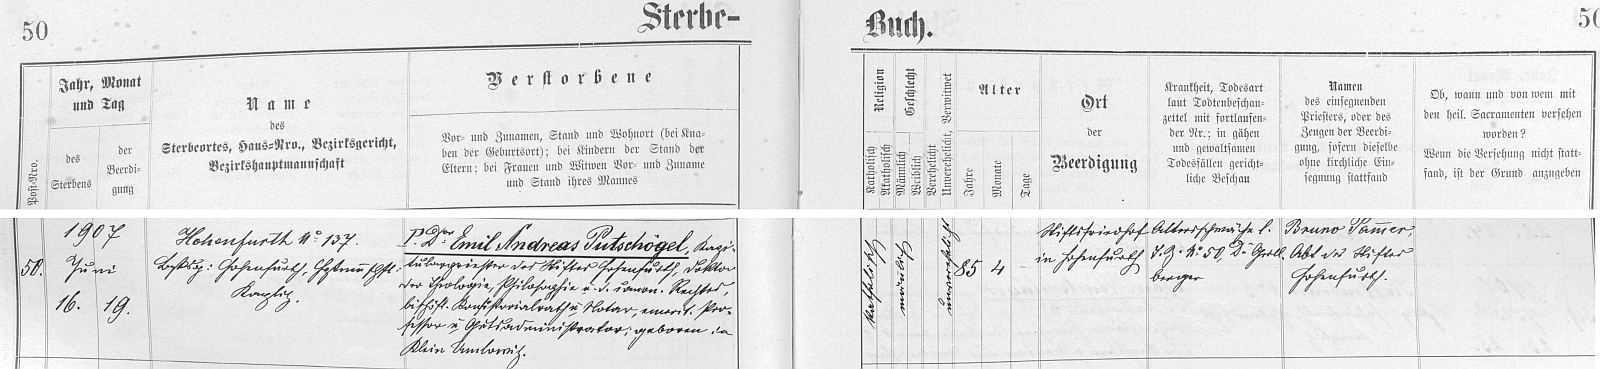 50
Sterbe-
Buch.
50
Post-Nro.
Jahr, Monat
und Tag
des
Sterbens
der
Beerdi-
gung
Name
des
Sterbeortes, Haus-Nro., Bezirksgericht,
Bezirkshauptmannschaft
Verstorbene
Vor- und Zunamen, Stand und Wohnort (bei Kna-
ben der Geburtsort); bei Kindern der Stand der
Eltern; bei Frauen und Witwen Vor- und Zuname
und Stand ihres Mannes
Religion
Katholisch
Akatholisch
Geschlecht
Männlich
Weiblich
Verehelicht
Unverehelicht, Verwitwet
Alter
Jahre
Monate
Tage
Ort
der
Beerdigung
Krankheit, Todesart
laut Todtenbeschau-
zettel mit fortlaufen-
der Nr.; in gähen
und gewaltsamen
Todesfällen gericht-
liche Beschau
Namen
des einsegnenden
Priesters, oder des
Zeugen der Beerdi-
gung, sofern dieselbe
ohne kirchliche Ein-
segnung stattfand
Ob, wann und von wem mit
den heil. Sacramenten versehen
worden?
Wenn die Versehung nicht statt-
fand, ist der Grund anzugeben
50.
1907
Juni
16. 19.
Hohenfurth No 137.
Hohenfurth,
Kaplitz.
P. Dr Emil Andreas Putschögel, Kapi-
tularpriester des Stiftes Hohenfurth, Doktor
der Theologie, Philosophie u. d. canon. Rechtes,
bischöfl. Konsistorialrath u. Notar, emerit. Pro-
fessor u. Gutsadministrator; geboren in
Klein Umlowitz.
katholisch
männlich
unverehelicht
85 4 -
Stiftsfriedhof
in Hohenfurth
Altersschwäche l.
No 50, Dr
berger
Bruno Pammer,
Abt des Stiftes
Hohenfurth.